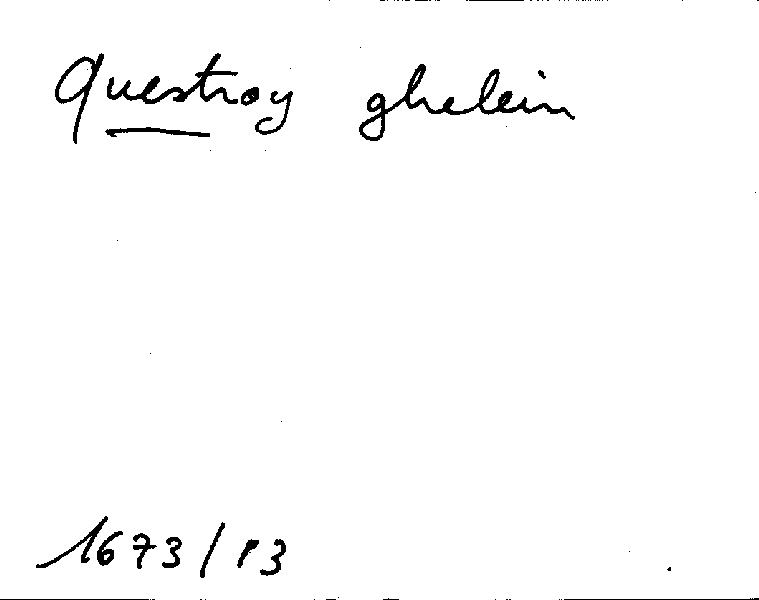 Questroy ghelein
1673/13